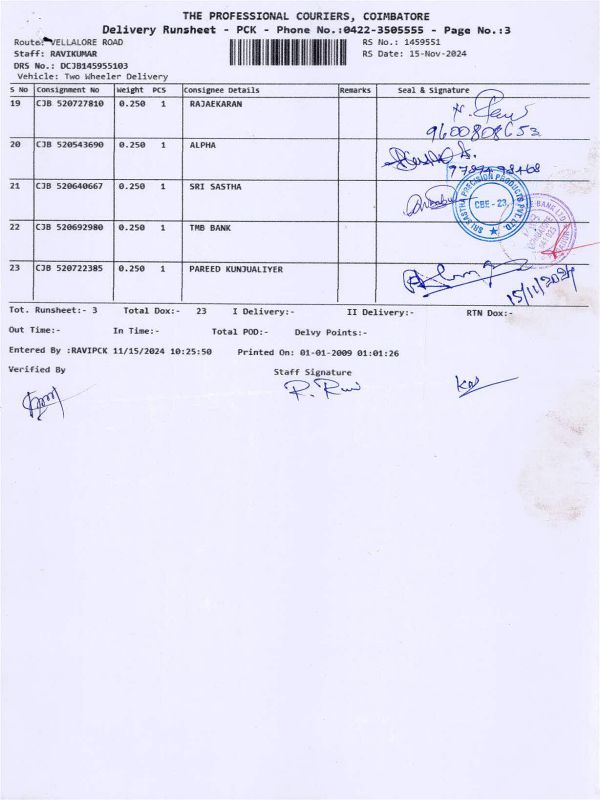 THE PROFESSIONAL COURIERS, COIMBATORE
Delivery Runsheet - PCK - Phone No.:0422-3505555 - Page No.:3
Route: VELLALORE ROAD RS No.: 1459551
Staff: RAVIKUMAR RS Date: 15-Nov-2024
DRS No.: DCJB145955103
Vehicle: Two Wheeler Delivery
S No Consignment No Weight PCS Consignee Details Remarks Seal & Signature
19 CJB 520727810 0.250 1 RAJAEKARAN
9600808653
20 CJB 520543690 0.250 1 ALPHA
21 CJB 520640667 0.250 1 SRI SASTHA
SRI SASTHA PRECISION PRODUCTS PVT. LTD.
CBE - 23.
22 CJB 520692980 0.250 1 TMB BANK
BANK LTD
23 CJB 520722385 0.250 1 PAREED KUNJUALIYER
15/11/2024
Tot. Runsheet:- 3 Total Dox:- 23 I Delivery:- II Delivery:- RTN Dox:-
Out Time:- In Time:- Total POD:- Delvy Points:-
Entered By :RAVIPCK 11/15/2024 10:25:50 Printed On: 01-01-2009 01:01:26
Verified By Staff Signature